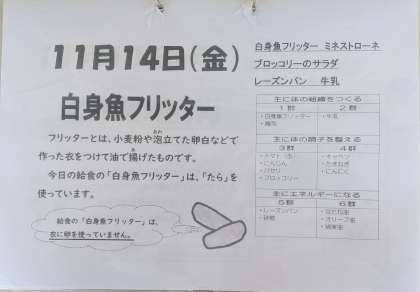 11月14日(金)
白身魚フリッター
フリッターとは、小麦粉や泡立てた卵白などで
作った衣をつけて油で揚げたものです。
今日の給食の「白身魚フリッター」は、「たら」を
使っています。
給食の「白身魚フリッター」は、
衣に卵を使っていません。
白身魚フリッター ミネストローネ
ブロッコリーのサラダ
レーズンパン 牛乳
主に体の組織をつくる
1群 2群
・白身魚フリッター ・牛乳
主に体の調子を整える
3群 4群
・トマト ・キャベツ
・にんじん ・たまねぎ
・パセリ ・にんにく
・ブロッコリー
主にエネルギーになる
5群 6群
・レーズンパン ・なたね油
・砂糖 ・オリーブ油